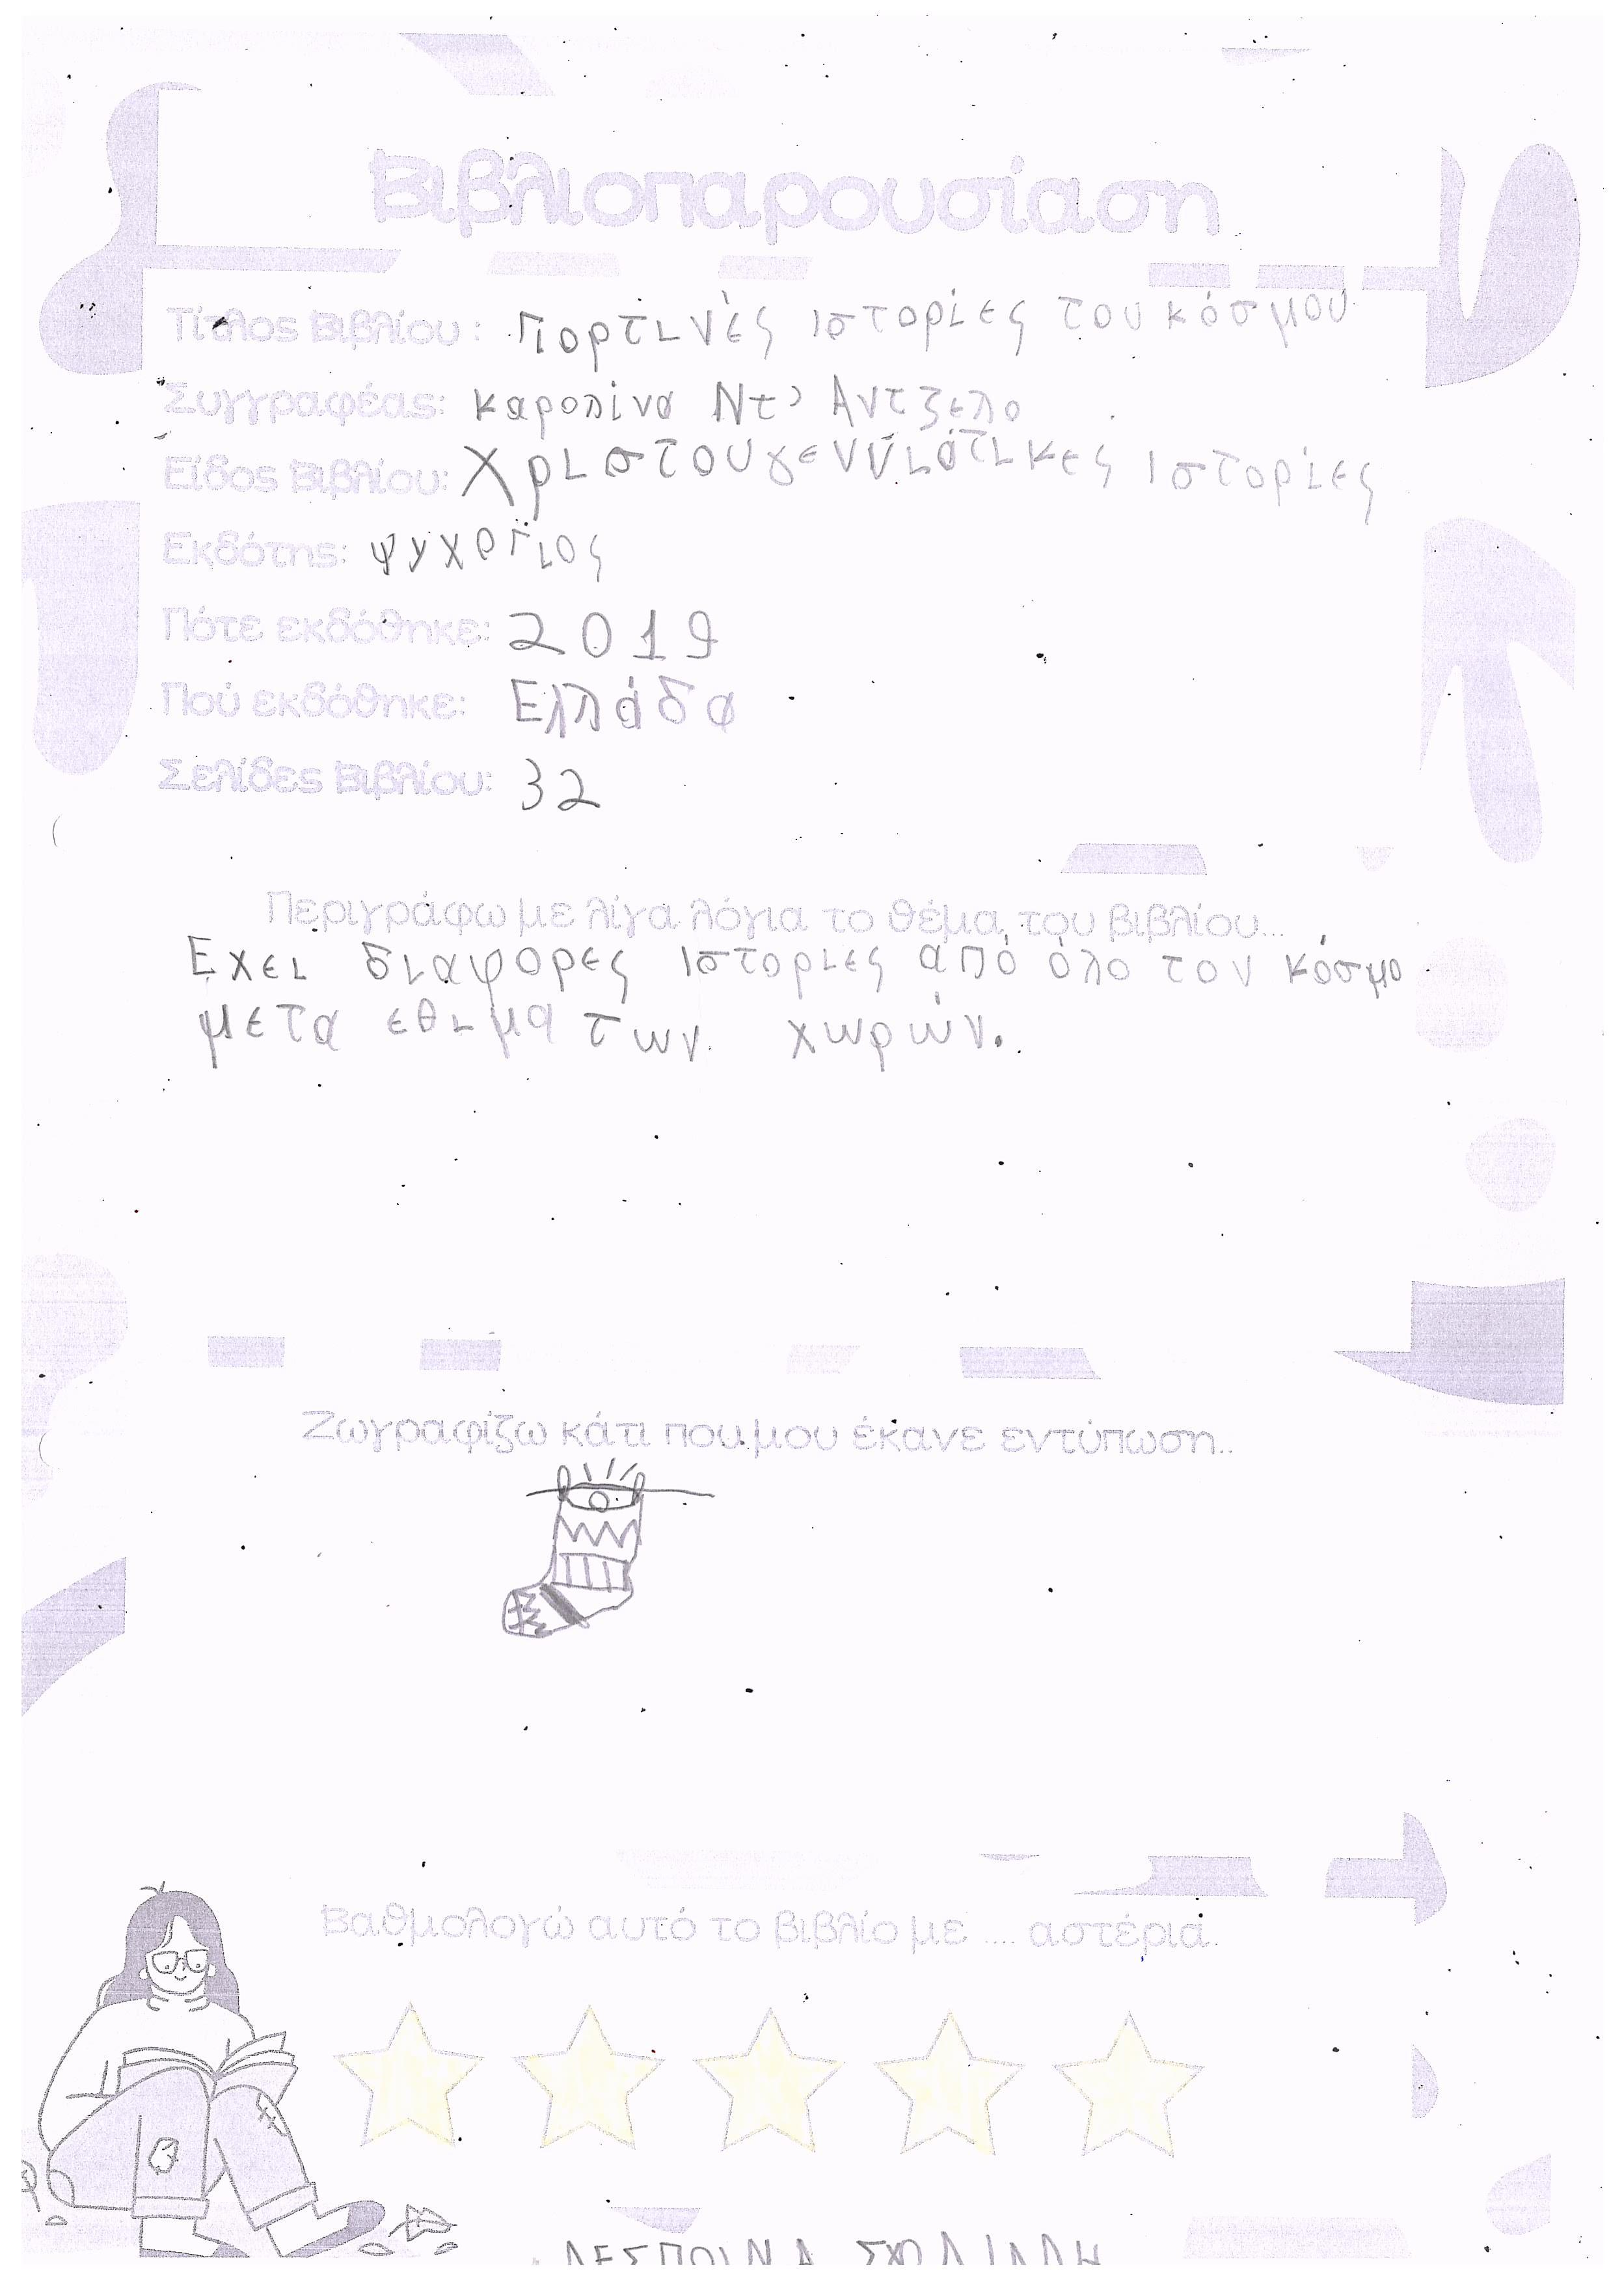 Βιβλιοπαρουσίαση
Τίτλος Βιβλίου: Γιορτινές ιστορίες του κόσμου
Συγγραφέας: Καρολίνα Ντ' Αντζελο
Είδος Βιβλίου: Χριστουγεννιάτικες Ιστορίες
Εκδότης: ψυχογιος
Πότε εκδόθηκε: 2019
Πού εκδόθηκε: Ελλάδα
Σελίδες Βιβλίου: 32
Περιγράφω με λίγα λόγια το θέμα του βιβλίου...
Εχει διαφορες ιστοριες από όλο τον κόσμο
μετα εθιμα των χωρών.
Ζωγραφίζω κάτι που μου έκανε εντύπωση..
Βαθμολογώ αυτό το βιβλίο με .... αστέρια.
ΔΕΣΠΟΙΝΑ